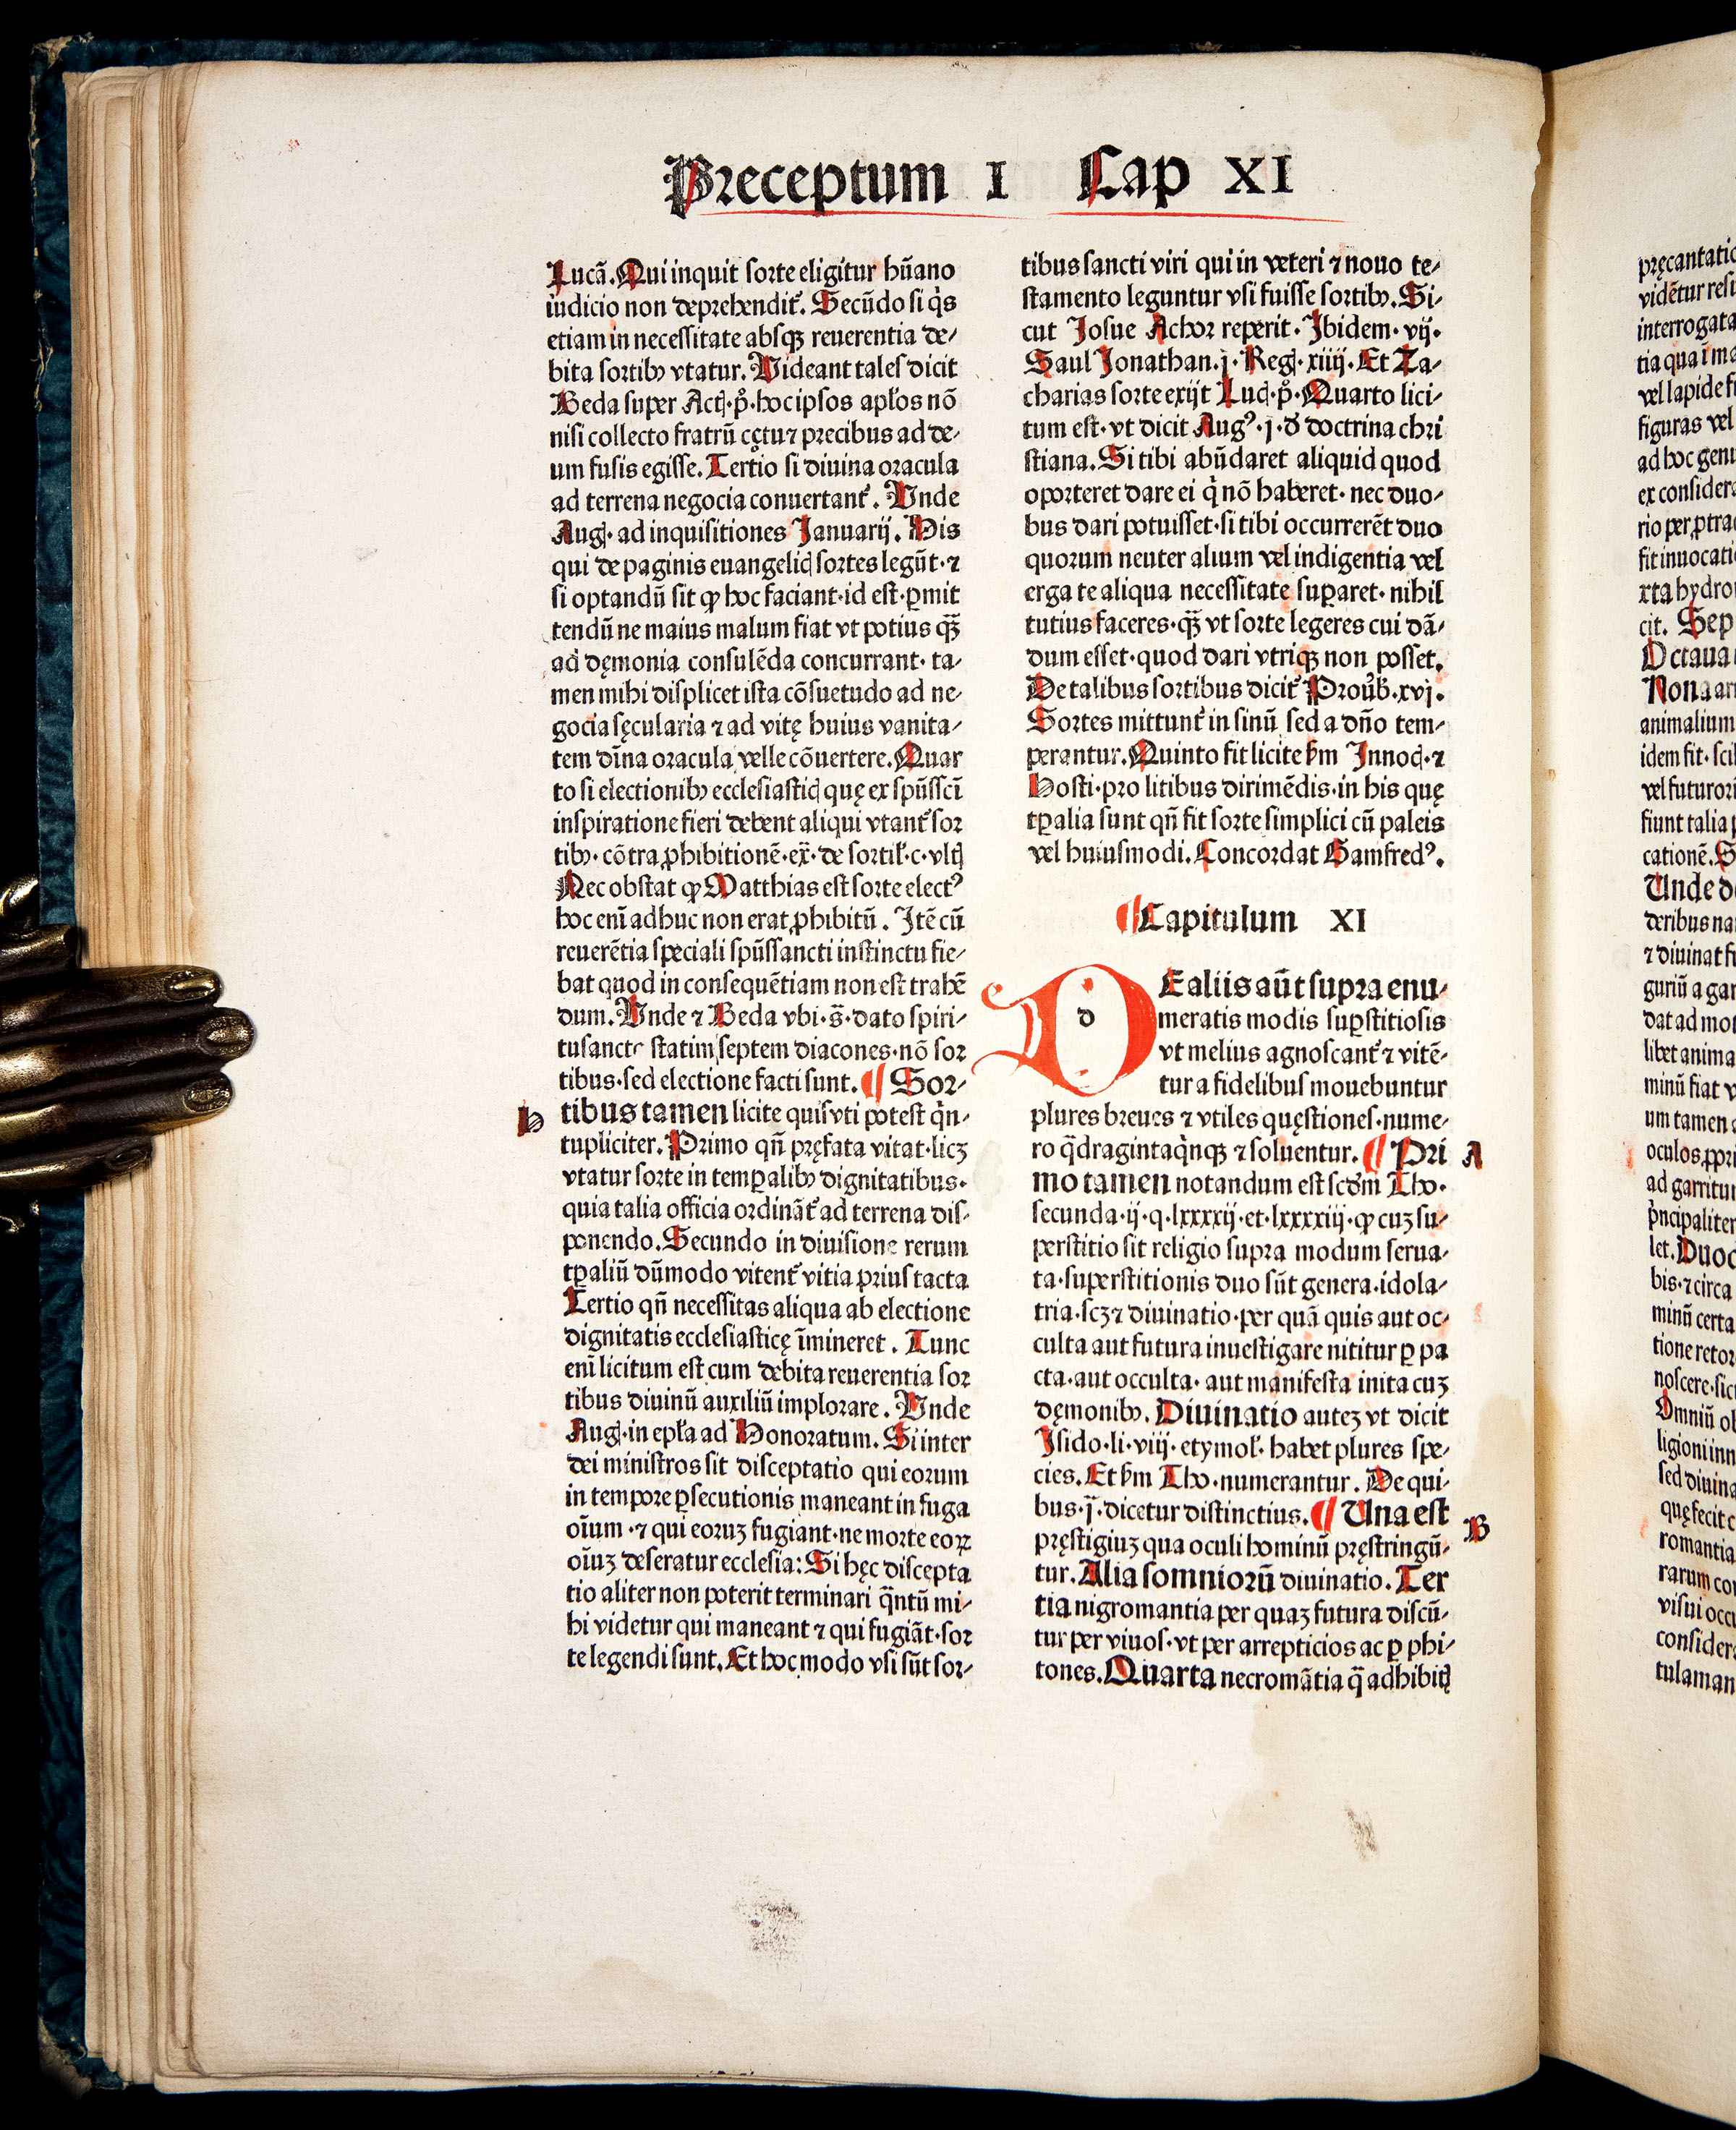 Preceptum I Cap XI
Lucã. Qui inquit sorte eligitur hũano
iudicio non deprehendit᷑. Secũdo si q̇s
etiam in necessitate absqꝫ reuerentia de⸗
bita sortibꝰ vtatur. Videant tales dicit
Beda super Actꝭ.pͦ.hoc ipsos apl̓os nõ
nisi collecto fratrũ cętu ⁊ precibus ad de⸗
um fusis egisse. Tertio si diuina oracula
ad terrena negocia conuertant᷑. Vnde
Augꝭ. ad inquisitiones Januarij. His
qui de paginis euangelicꝭ sortes legũt. ⁊
si optandũ sit ꝙ hoc faciant.id est.ꝑmit
tendũ ne maius malum fiat vt potius q̃ꝫ
ad dęmonia consulẽda concurrant. ta⸗
men mihi displicet ista cõsuetudo ad ne⸗
gocia sęcularia ⁊ ad vitę huius vanita⸗
tem diña oracula velle cõuertere. Quar
to si electionibꝰ ecclesiasticꝭ quę ex spũssci᷑
inspiratione fieri debent aliqui vtant᷑ sor
tibꝰ. cõtra ꝓhibitionẽ.ex̃. de sortil̓.c.vltꝭ
Nec obstat ꝙ Matthias est sorte electꝰ
hoc eni᷑ adhuc non erat ꝓhibitũ. Itẽ cũ
reuerẽtia speciali spũssancti instinctu fie⸗
bat quod in consequẽtiam non est trahẽ
dum. Vnde ⁊ Beda vbi.s̃.dato spiri⸗
tusancto statim septem diacones.nõ sor
tibus.sed electione facti sunt. ¶ Sor⸗
H tibus tamen licite quis vti potest q̇n⸗
tupliciter. Primo qñ pręfata vitat.licꝫ
vtatur sorte in temꝑalibꝰ dignitatibus.
quia talia officia ordinãt᷑ ad terrena dis⸗
ponendo. Secundo in diuisione rerum
tꝑaliũ dũmodo vitent᷑ vitia prius tacta
Tertio qñ necessitas aliqua ab electione
dignitatis ecclesiasticę i᷑mineret. Tunc
eni᷑ licitum est cum debita reuerentia sor
tibus diuinũ auxiliũ implorare. Vnde
Augꝭ.in epl̓a ad Honoratum. Si inter
dei ministros sit disceptatio qui eorum
in tempore ꝑsecutionis maneant in fuga
oi᷑um.⁊ qui eoruꝫ fugiant.ne morte eoꝝ
oi᷑uꝫ deseratur ecclesia: Si hęc discepta
tio aliter non poterit terminari q̃ntũ mi⸗
hi videtur qui maneant ⁊ qui fugiãt.sor
te legendi sunt. Et hoc modo vsi sũt sor⸗
tibus sancti viri qui in veteri ⁊ nouo te⸗
stamento leguntur vsi fuisse sortibꝰ. Si⸗
cut Josue Achor reperit. Ibidem. vij.
Saul Jonathan.j. Regꝭ. xiiij. Et Za⸗
charias sorte exijt Lucꝭ.pͦ. Quarto lici⸗
tum est.vt dicit Augꝰ.j.đ doctrina chri
stiana. Si tibi abũdaret aliquid quod
oporteret dare ei q̇ nõ haberet. nec duo⸗
bus dari potuisset.si tibi occurrerẽt duo
quorum neuter alium vel indigentia vel
erga te aliqua necessitate suꝑaret. nihil
tutius faceres.q̃ꝫ vt sorte legeres cui dã⸗
dum esset.quod dari vtriqꝫ non posset.
De talibus sortibus dicit᷑ Prou᷑b̓.xvj.
Sortes mittunt᷑ in sinũ sed a dño tem⸗
perantur. Quinto fit licite ẜm Innocꝭ.⁊
Hosti.pro litibus dirimẽdis.in his quę
tꝑalia sunt qñ fit sorte simplici cũ paleis
vel huiusmodi. Concordat Gamfredꝰ.
¶ Capitulum XI
D d E aliis aũt supra enu⸗
meratis modis suꝑstitiosis
vt melius agnoscant᷑ ⁊ vitẽ⸗
tur a fidelibus mouebuntur
plures breues ⁊ vtiles quęstiones.nume⸗
ro q̃dragintaq̇nqꝫ ⁊ soluentur. ¶ Pri A
mo tamen notandum est scđm Tho.
secunda.ij.q.lxxxxij.et.lxxxxiij.ꝙ cuꝫ su⸗
perstitio sit religio supra modum serua⸗
ta.superstitionis duo sũt genera.idola⸗
tria.scꝫ ⁊ diuinatio.per quã quis aut oc⸗
culta aut futura inuestigare nititur ꝑ pa
cta.aut occulta. aut manifesta inita cuꝫ
dęmonibꝰ. Diuinatio auteꝫ vt dicit
Isido.li.viij. etymol̓. habet plures spe⸗
cies. Et ẜm Tho.numerantur. De qui⸗
bus.j̃.dicetur distinctius. ¶ Una est B
pręstigiuꝫ qua oculi hominũ pręstringũ⸗
tur. Alia somniorũ diuinatio. Ter
tia nigromantia per quaꝫ futura discũ⸗
tur per viuos.vt per arrepticios ac ꝑ phi⸗
tones. Quarta necromãtia q̃ adhibitꝭ